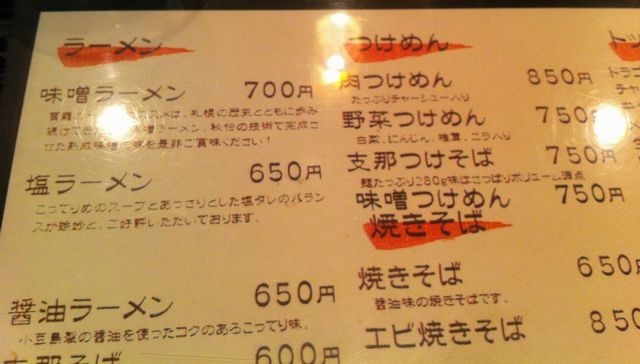 ラーメン
味噌ラーメン 700円
は、札幌の歴史とともに歩み
続けて 味噌ラーメン、秘伝の技術で完成さ
せた熟成味噌の味を是非ご賞味ください!
塩ラーメン 650円
こってりめのスープとあっさりとした塩ダレのバラン
スが絶妙と、ご好評いただいております。
醤油ラーメン 650円
小豆島製の醤油を使ったコクのあるこってり味。
支那そば 600円
つけめん
肉つけめん 850円
たっぷりチャーシュー入り
野菜つけめん 750円
白菜、にんじん、椎茸、ニラ入り
支那つけそば 750円
麺たっぷり280g味はさっぱりボリューム満点
味噌つけめん 750円
焼きそば
焼きそば 650円
醤油味の焼きそばです。
エビ焼きそば 850
トッ
ドラゴ
チャ
キ